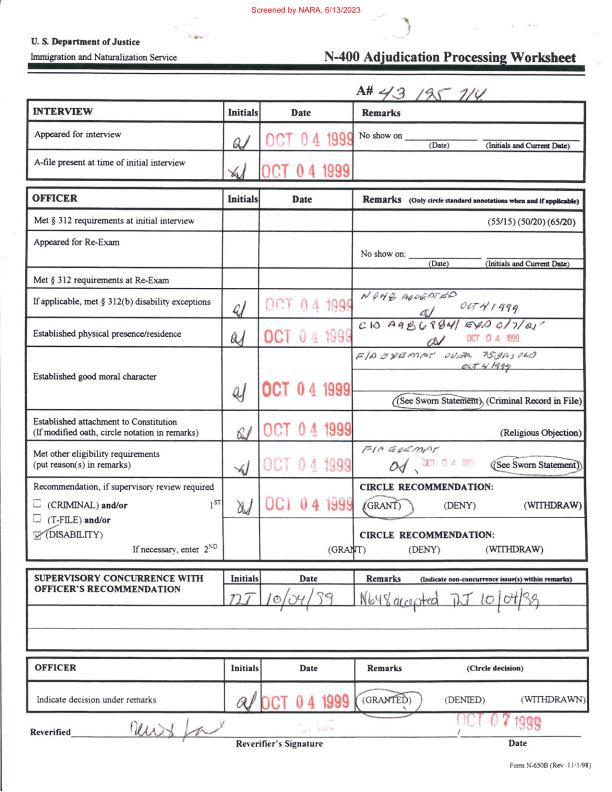 Screened by NARA, 6/13/2023
U. S. Department of Justice
Immigration and Naturalization Service
N-400 Adjudication Processing Worksheet
A# 43 195 714
INTERVIEW Initials Date Remarks
Appeared for interview OCT 04 1999 No show on
(Date) (Initials and Current Date)
A-file present at time of initial interview OCT 04 1999
OFFICER Initials Date Remarks (Only circle standard annotations when and if applicable)
Met § 312 requirements at initial interview (55/15) (50/20) (65/20)
Appeared for Re-Exam
No show on:
(Date) (Initials and Current Date)
Met § 312 requirements at Re-Exam
If applicable, met § 312(b) disability exceptions OCT 04 1999 N648 OCT 4 1999
Established physical presence/residence OCT 04 1999 OCT 04 1999
F/P EXEMPT OVER 75 YRS OLD
OCT 4 1999
Established good moral character OCT 04 1999
(See Sworn Statement), (Criminal Record in File)
Established attachment to Constitution
(If modified oath, circle notation in remarks) OCT 04 1999 (Religious Objection)
Met other eligibility requirements
(put reason(s) in remarks) OCT 04 1999 F/P EXEMPT OCT 04 (See Sworn Statement)
Recommendation, if supervisory review required CIRCLE RECOMMENDATION:
(CRIMINAL) and/or 1ST OCT 04 1999 (GRANT) (DENY) (WITHDRAW)
(T-FILE) and/or
(DISABILITY) CIRCLE RECOMMENDATION:
If necessary, enter 2ND (GRANT) (DENY) (WITHDRAW)
SUPERVISORY CONCURRENCE WITH
OFFICER'S RECOMMENDATION Initials Date Remarks (Indicate non-concurrence issue(s) within remarks)
10/04/99 N648 accepted 10/04/99
OFFICER Initials Date Remarks (Circle decision)
Indicate decision under remarks OCT 04 1999 (GRANTED) (DENIED) (WITHDRAWN)
Reverified OCT 07 1999
Reverifier's Signature Date
Form N-650B (Rev 11/1/98)